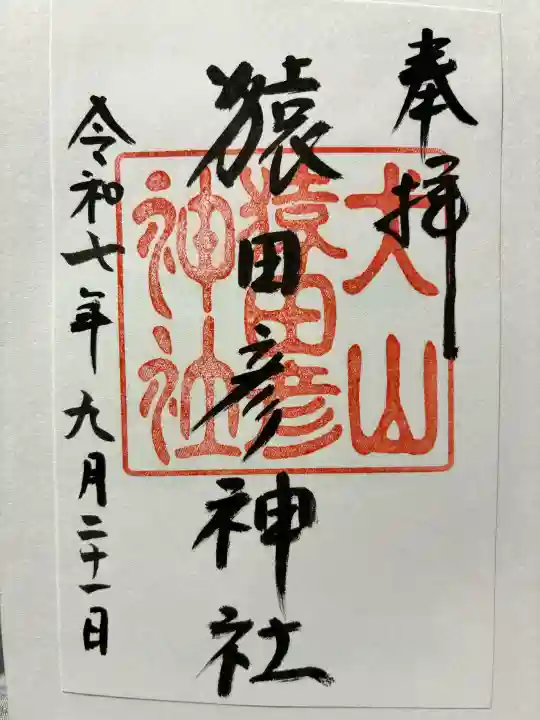 奉拝
猿田彦神社
令和七年九月二十一日
犬山
猿田彦
神社